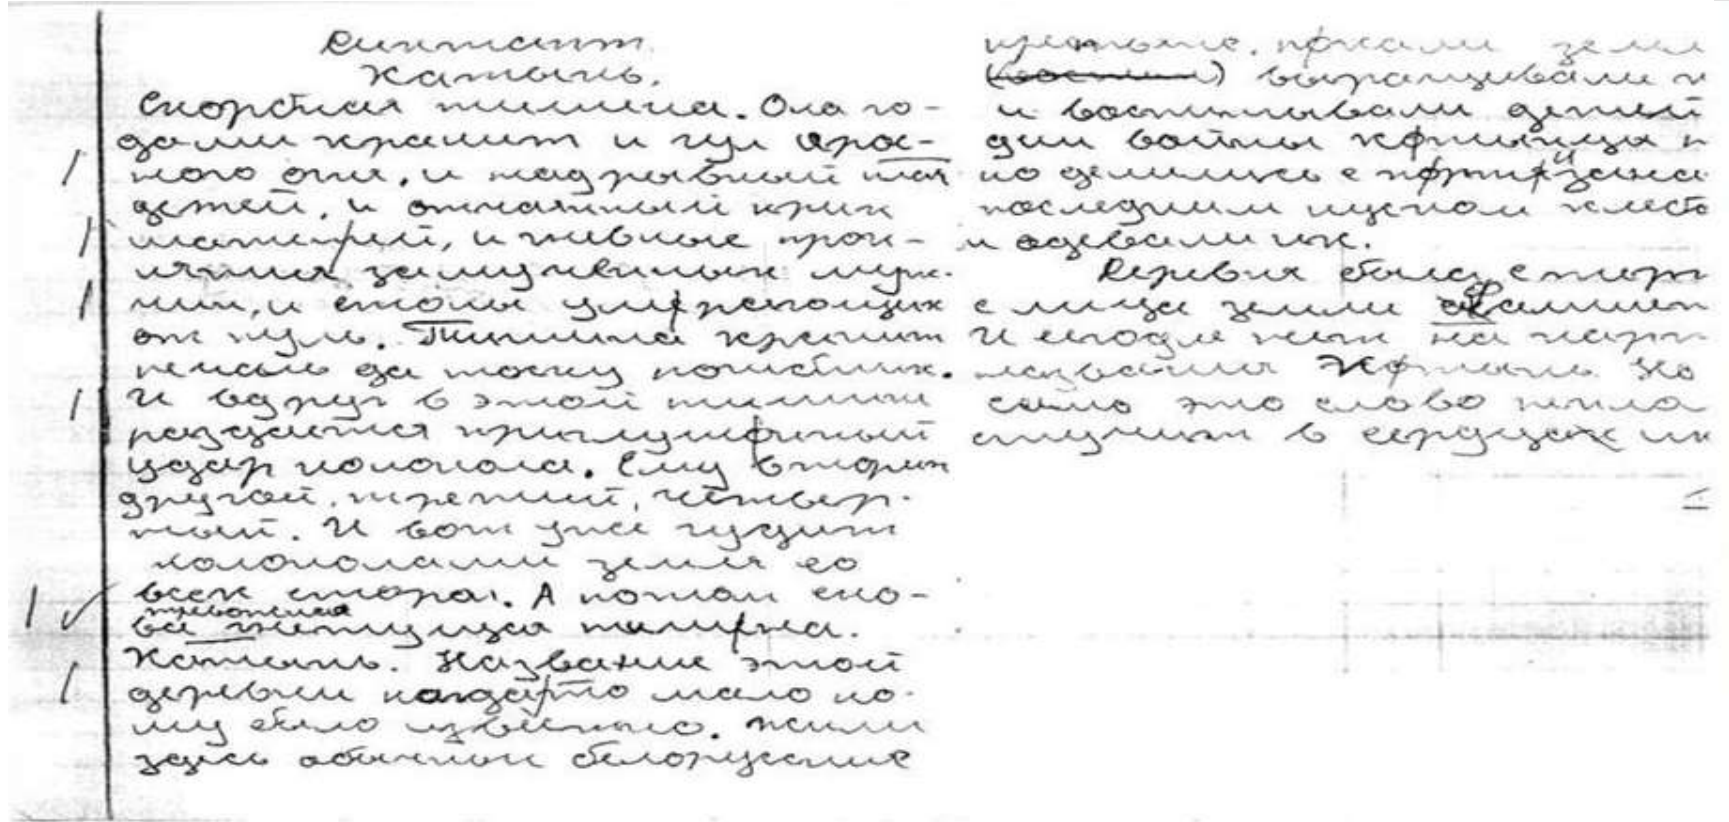 Диктант.
Хатынь.
Скорбная тишина. Она го-
дами хранит и гул ярос-
ного огня, и надрывный плач
детей, и отчаянный крик
матерей, и гневные прок-
лятия замученных муж-
чин, и стоны умирающих
от пуль. Тишина хранит
печаль да тоску погибших.
И вдруг в этой тишине
раздаётся приглушённый
удар колокола. Ему вторит
другой, третий, четвёр-
тый. И вот уже гудит
колоколами земля со
всех сторон. А потом сно-
тревожная
ва гнетущая тишина.
Хатынь. Название этой
деревни когда-то мало ко-
му было известно. Жили
здесь обычные белорусские
крестьяне, пахали земл
выращивали
и воспитывали детей
дни войны хатынцы
но делились с партизана
последним куском хлеба
и одевали их.
Деревня была стерт
с лица земли
И сегодня нет на карт
названия Хатынь. Но
само это слово пепла
стучит в сердцах